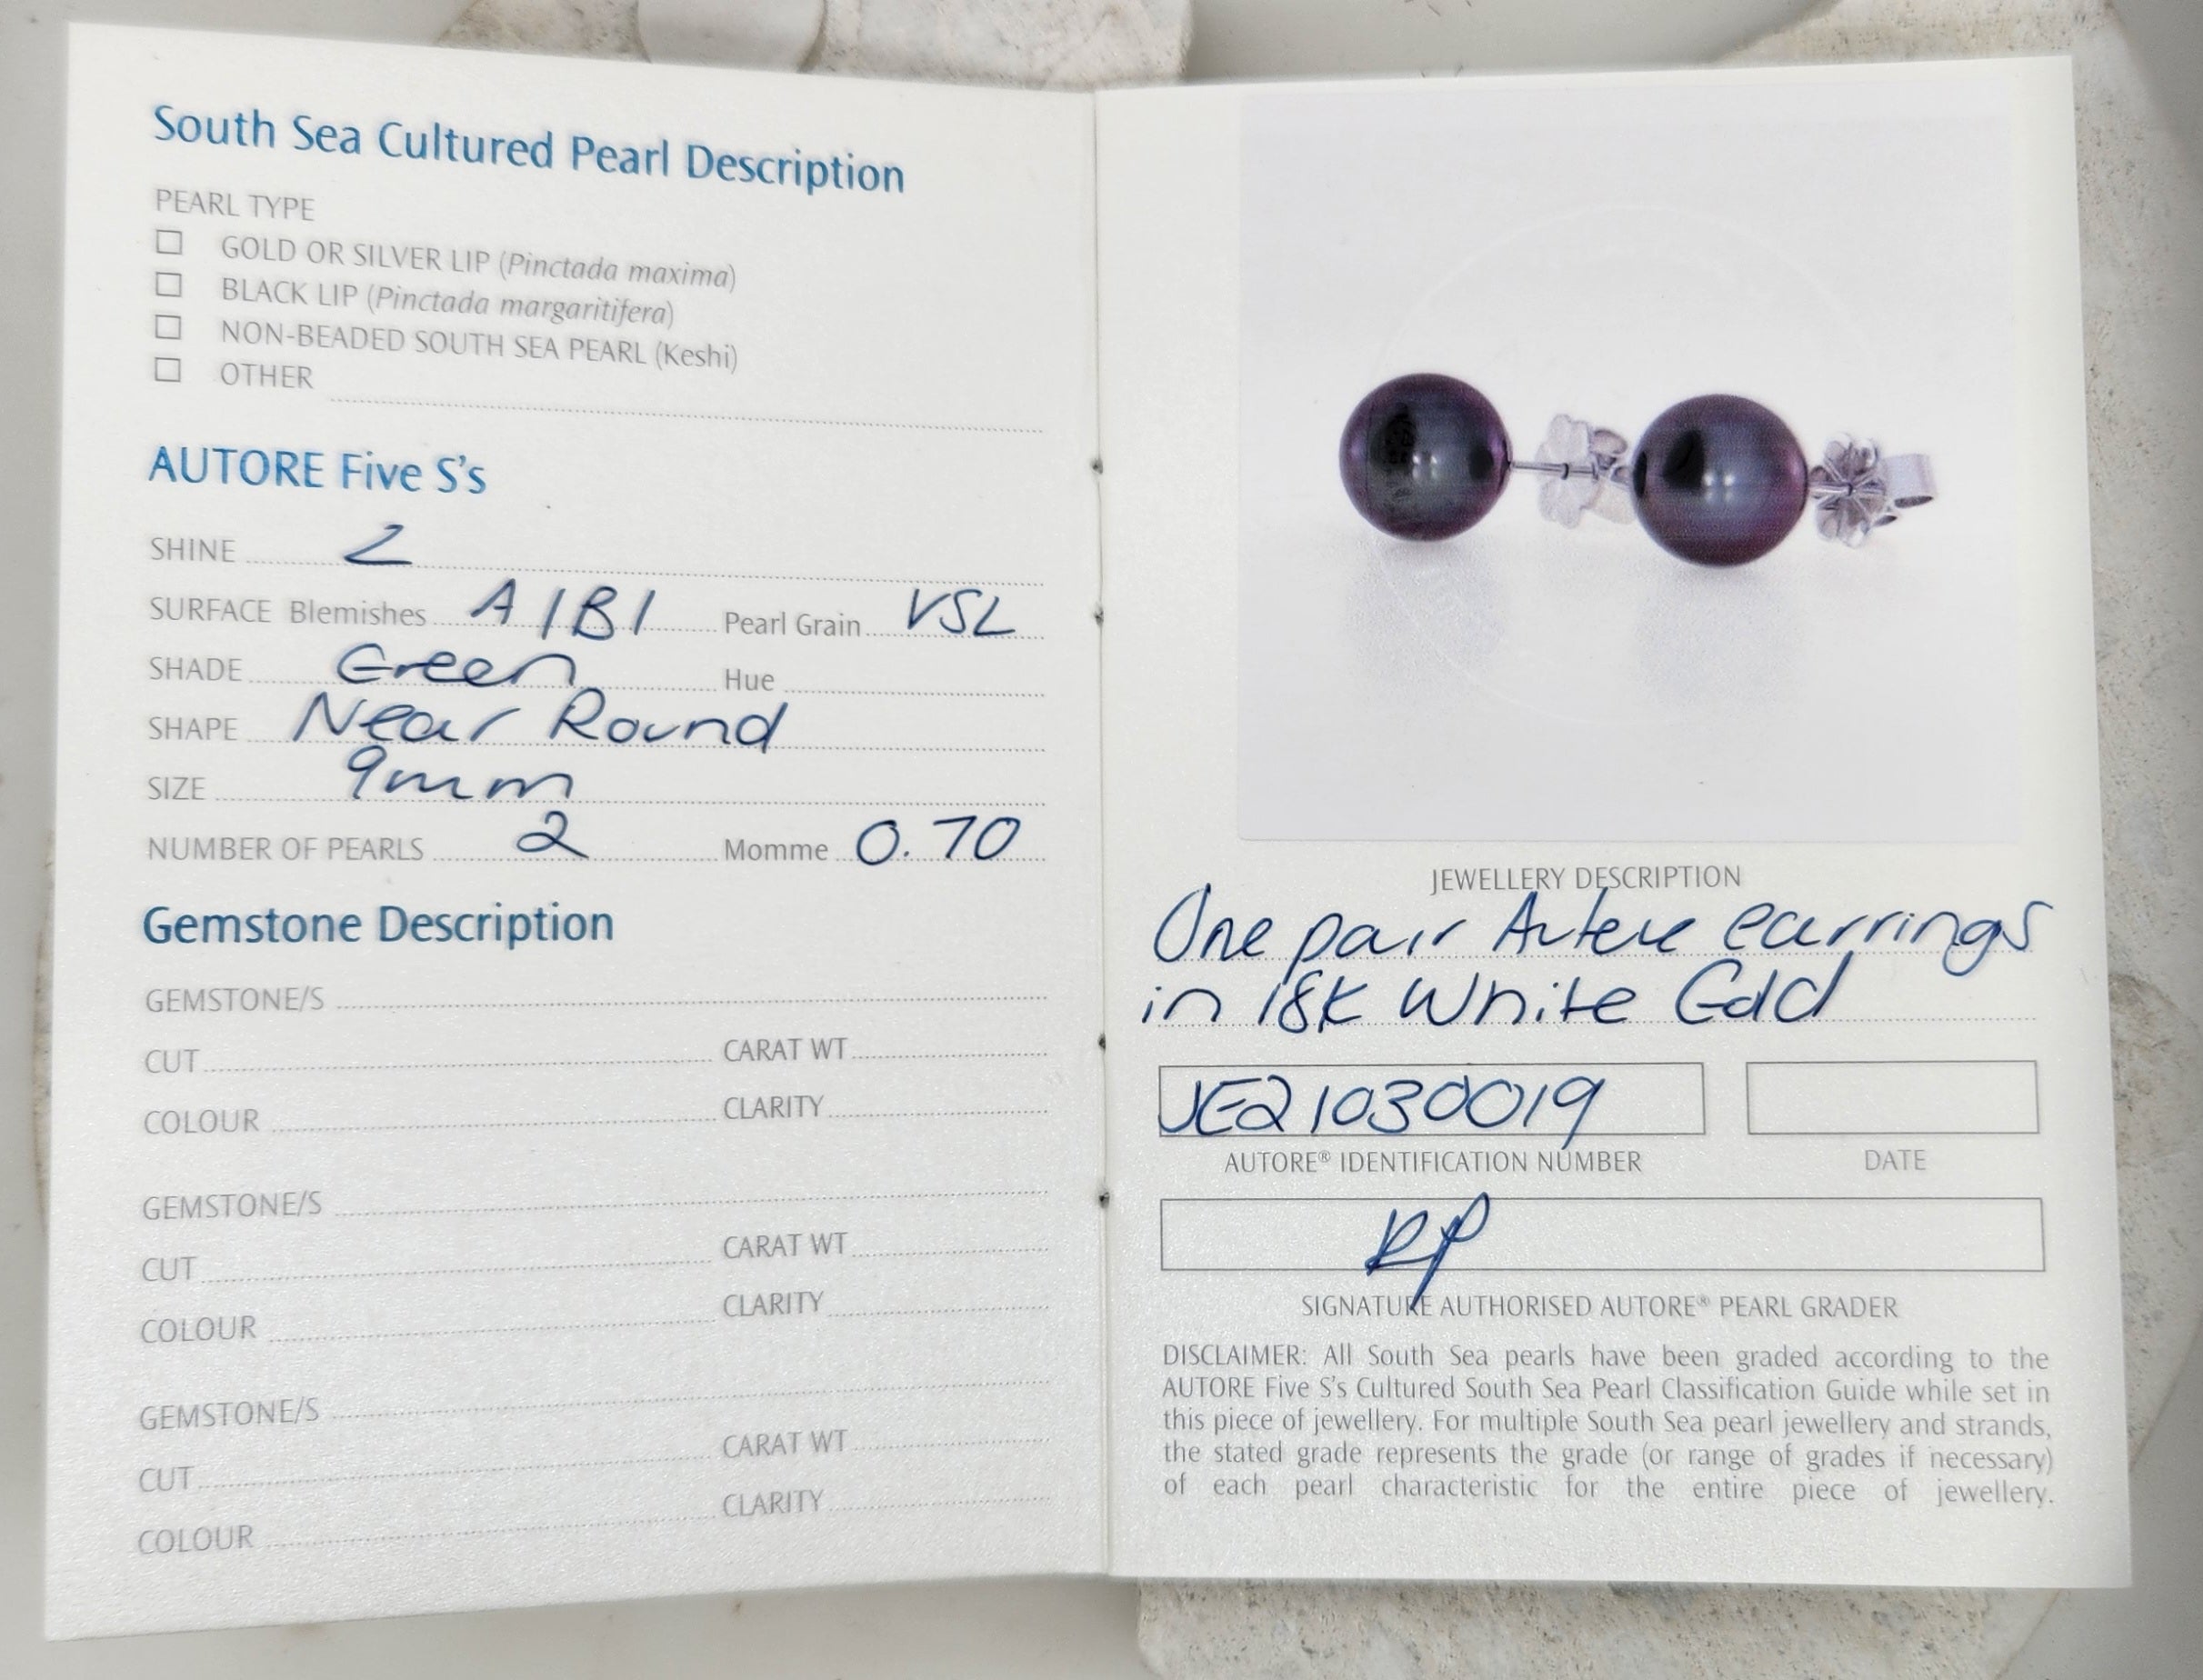 South Sea Cultured Pearl Description
PEARL TYPE
GOLD OR SILVER LIP (Pinctada maxima)
BLACK LIP (Pinctada margaritifera)
NON-BEADED SOUTH SEA PEARL (Keshi)
OTHER
AUTORE Five S's
SHINE 2
SURFACE Blemishes A1B1 Pearl Grain VSL
SHADE Green Hue
SHAPE Near Round
SIZE 9mm
NUMBER OF PEARLS 2 Momme 0.70
Gemstone Description
GEMSTONE/S
CUT CARAT WT
COLOUR CLARITY
GEMSTONE/S
CUT CARAT WT
COLOUR CLARITY
GEMSTONE/S
CUT CARAT WT
COLOUR CLARITY
JEWELLERY DESCRIPTION
One pair Autore earrings
in 18K White Gold
JE21030019
AUTORE® IDENTIFICATION NUMBER DATE
RP
SIGNATURE AUTHORISED AUTORE® PEARL GRADER
DISCLAIMER: All South Sea pearls have been graded according to the
AUTORE Five S's Cultured South Sea Pearl Classification Guide while set in
this piece of jewellery. For multiple South Sea pearl jewellery and strands,
the stated grade represents the grade (or range of grades if necessary)
of each pearl characteristic for the entire piece of jewellery.